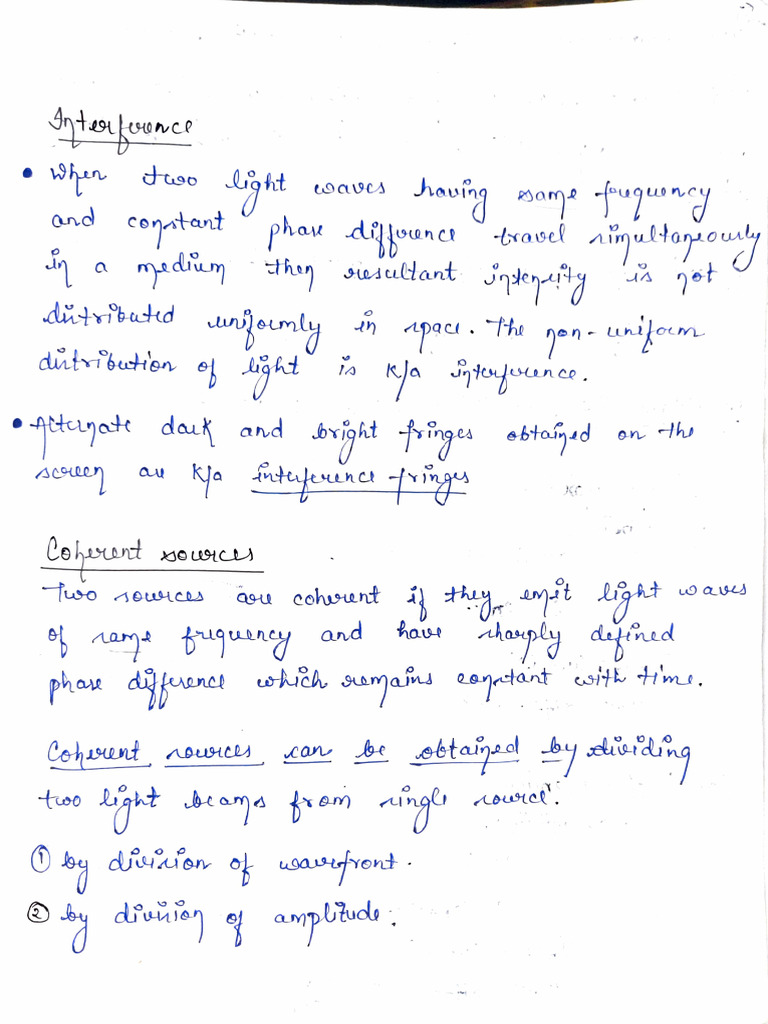 Interference
• When two light waves having same frequency
and constant phase difference travel simultaneously
in a medium then resultant intensity is not
distributed uniformly in space. The non-uniform
distribution of light is k/a interference.
• Alternate dark and bright fringes obtained on the
screen are k/a interference fringes
Coherent sources
Two sources are coherent if they emit light waves
of same frequency and have sharply defined
phase difference which remains constant with time.
Coherent sources can be obtained by dividing
two light beams from single source.
① by division of wavefront.
② by division of amplitude.